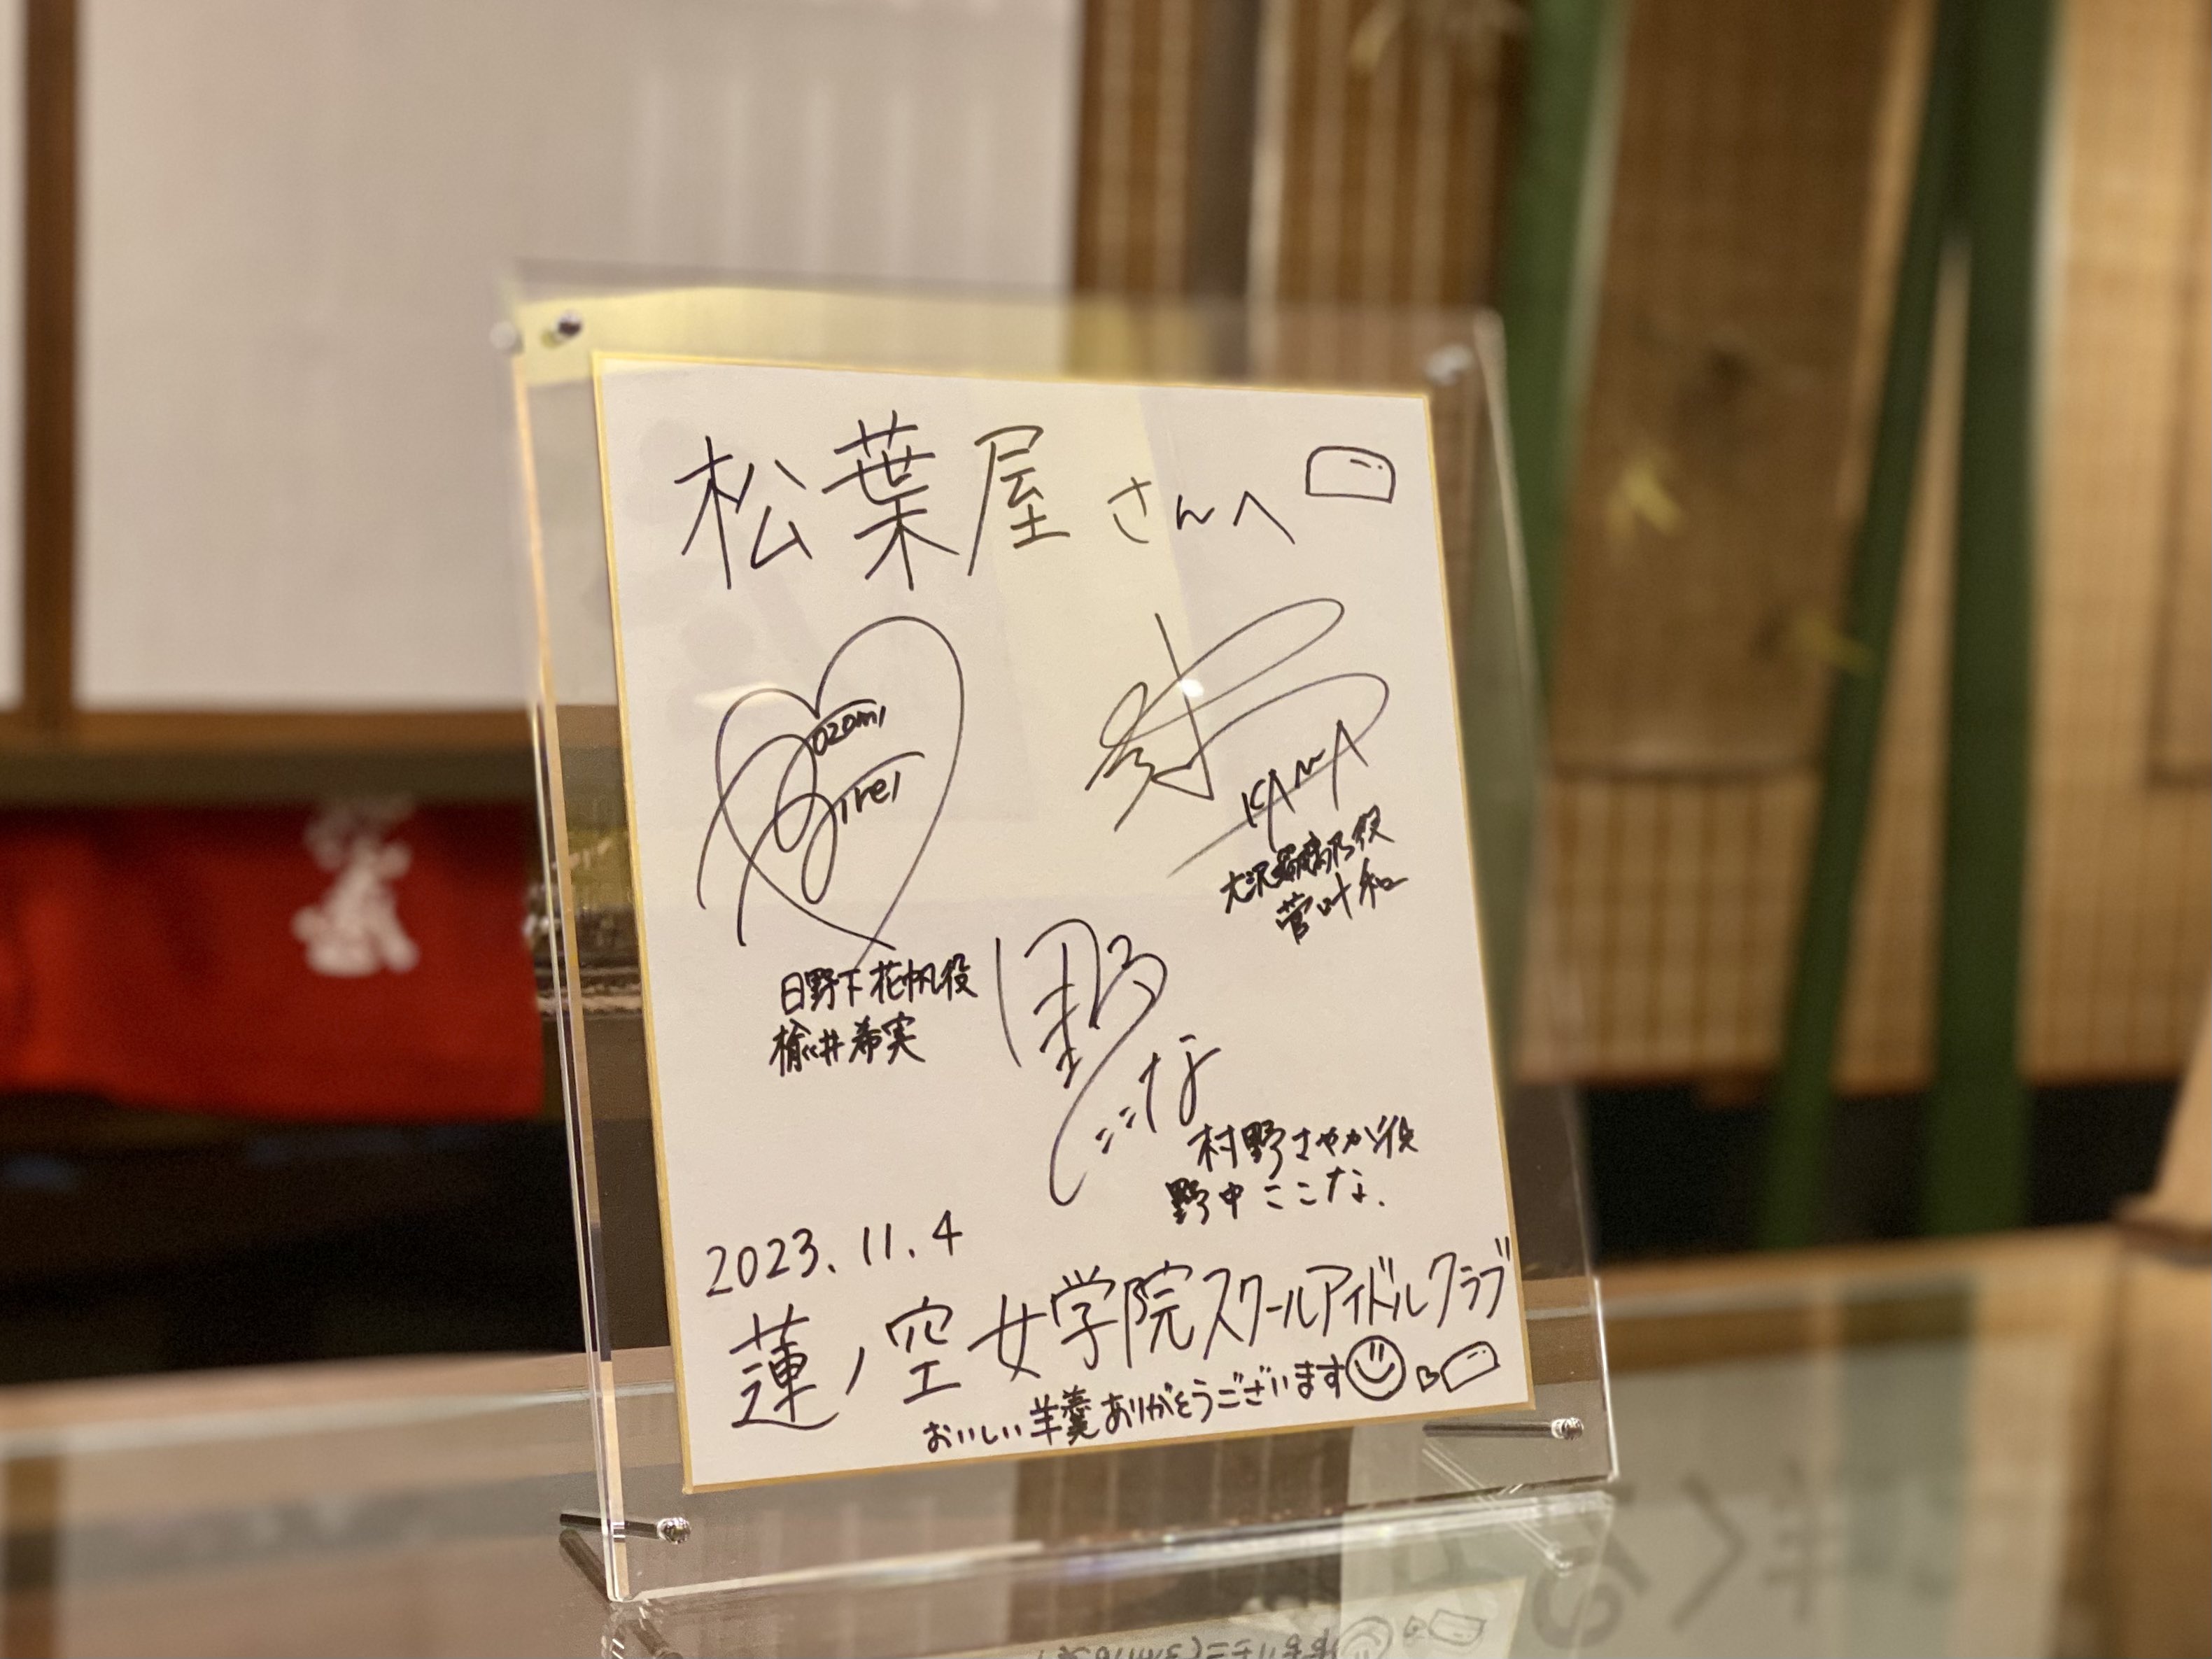 松葉屋さんへ
Nozomi
Nirei
KANA
大沢瑠璃乃役
菅叶和
日野下花帆役
楡井希実
野
ここな
村野さやか役
野中ここな.
2023.11.4
蓮ノ空女学院スクールアイドルクラブ
おいしい羊羹ありがとうございます